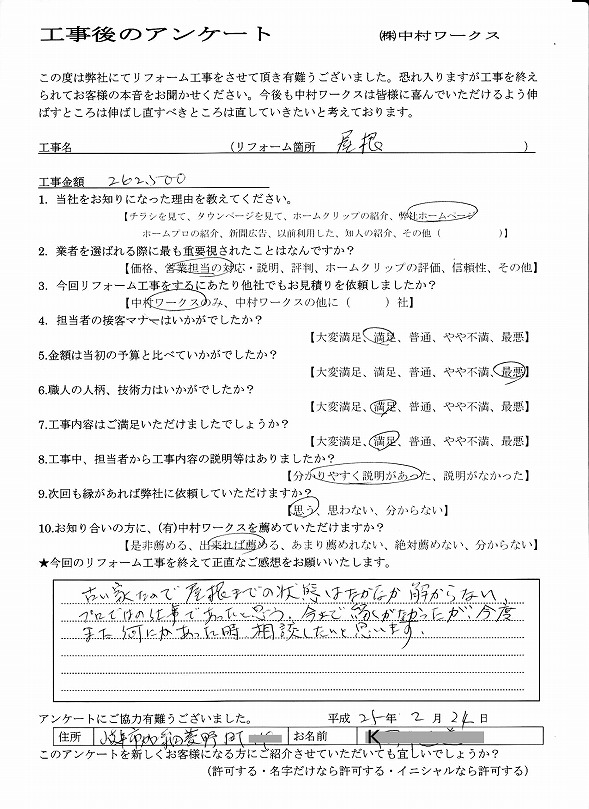 工事後のアンケート ㈱中村ワークス
この度は弊社にてリフォーム工事をさせて頂き有難うございました。恐れ入りますが工事を終え
られてお客様の本音をお聞かせください。今後も中村ワークスは皆様に喜んでいただけるよう伸
ばすところは伸ばし直すべきところは直していきたいと考えております。
工事名 (リフォーム箇所 屋根 )
工事金額 262500
1. 当社をお知りになった理由を教えてください。
【チラシを見て、タウンページを見て、ホームクリップの紹介、弊社ホームページ
ホームプロの紹介、新聞広告、以前利用した、知人の紹介、その他( )】
2. 業者を選ばれる際に最も重要視されたことはなんですか？
【価格、営業担当の対応・説明、評判、ホームクリップの評価、信頼性、その他】
3. 今回リフォーム工事をするにあたり他社でもお見積りを依頼しましたか？
【中村ワークスのみ、中村ワークスの他に( )社】
4. 担当者の接客マナーはいかがでしたか？
【大変満足、満足、普通、やや不満、最悪】
5.金額は当初の予算と比べていかがでしたか？
【大変満足、満足、普通、やや不満、最悪】
6.職人の人柄、技術力はいかがでしたか？
【大変満足、満足、普通、やや不満、最悪】
7.工事内容はご満足いただけましたでしょうか？
【大変満足、満足、普通、やや不満、最悪】
8.工事中、担当者から工事内容の説明等はありましたか？
【分かりやすく説明があった、説明がなかった】
9.次回も縁があれば弊社に依頼していただけますか？
【思う、思わない、分からない】
10.お知り合いの方に、(有)中村ワークスを薦めていただけますか？
【是非薦める、出来れば薦める、あまり薦めれない、絶対薦めない、分からない】
★今回のリフォーム工事を終えて正直なご感想をお願いいたします。
古い家なので屋根までの状態はなかなか解からない、
プロならではの仕事であったと思う。今まで縁がなかったが、今度
また何かあった時相談したいと思います。
アンケートにご協力有難うございました。 平成 25 年 2 月 24 日
住所 岐阜市 町 お名前 K
このアンケートを新しくお客様になる方にご紹介させていただいても宜しいでしょうか？
(許可する・名字だけなら許可する・イニシャルなら許可する)